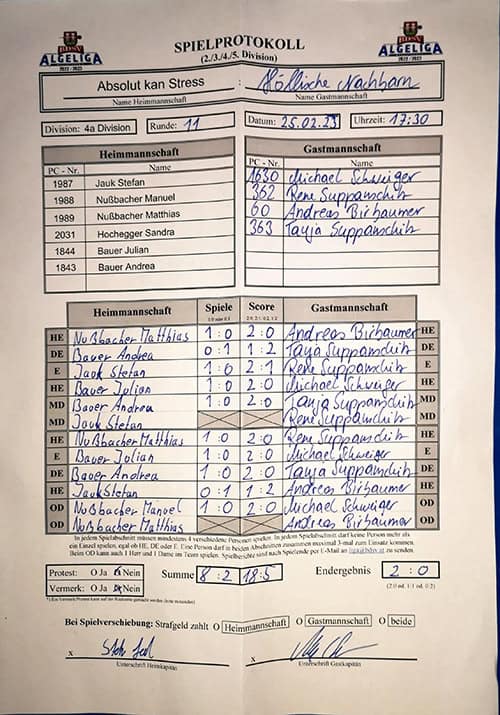 BDSV
ALGELIGA
2022 / 2023
SPIELPROTOKOLL
(2./3./4./5. Division)
BDSV
ALGELIGA
2022 / 2023
Absolut kan Stress : Höllische Nachbarn
Name Heimmannschaft Name Gastmannschaft
Division: 4a Division Runde: 11 Datum: 25.02.23 Uhrzeit: 17:30
Heimmannschaft Gastmannschaft
PC - Nr. Name PC - Nr. Name
1987 Jauk Stefan 1630 Michael Schweiger
1988 Nußbacher Manuel 362 Rene Suppanschitz
1989 Nußbacher Matthias 60 Andreas Birbaumer
2031 Hochegger Sandra 363 Tanja Suppanschitz
1844 Bauer Julian
1843 Bauer Andrea
Heimmannschaft Spiele Score Gastmannschaft
1:0 oder 0:1 2:0, 2:1, 0:2, 1:2
HE Nußbacher Matthias 1:0 2:0 Andreas Birbaumer HE
DE Bauer Andrea 0:1 1:2 Tanja Suppanschitz DE
E Jauk Stefan 1:0 2:1 Rene Suppanschitz E
HE Bauer Julian 1:0 2:0 Michael Schweiger HE
MD Bauer Andrea 1:0 2:0 Tanja Suppanschitz MD
MD Jauk Stefan Rene Suppanschitz MD
HE Nußbacher Matthias 1:0 2:0 Rene Suppanschitz HE
E Bauer Julian 1:0 2:0 Michael Schweiger E
DE Bauer Andrea 1:0 2:0 Tanja Suppanschitz DE
HE Jauk Stefan 0:1 1:2 Andreas Birbaumer HE
OD Nußbacher Manuel 1:0 2:0 Michael Schweiger OD
OD Nußbacher Matthias Andreas Birbaumer OD
In jedem Spielabschnitt müssen mindestens 4 verschiedene Personen spielen. In jedem Spielabschnitt darf keine Person mehr als
ein Einzel spielen, egal ob HE, DE oder E. Eine Person darf in beiden Abschnitten zusammen maximal 3-mal zum Einsatz kommen.
Beim OD kann auch 1 Herr und 1 Dame im Team spielen. Spielberichte sind nach Spielende per E-Mail an liga@bdsv.at zu senden.
Protest: O Ja Nein Summe 8:2 18:5 Endergebnis 2:0
Vermerk: O Ja Nein (2:0 od. 1:1 od. 0:2)
Bei Spielverschiebung: Strafgeld zahlt O Heimmannschaft O Gastmannschaft O beide
x x
Unterschrift Heimkapitän Unterschrift Gastkapitän